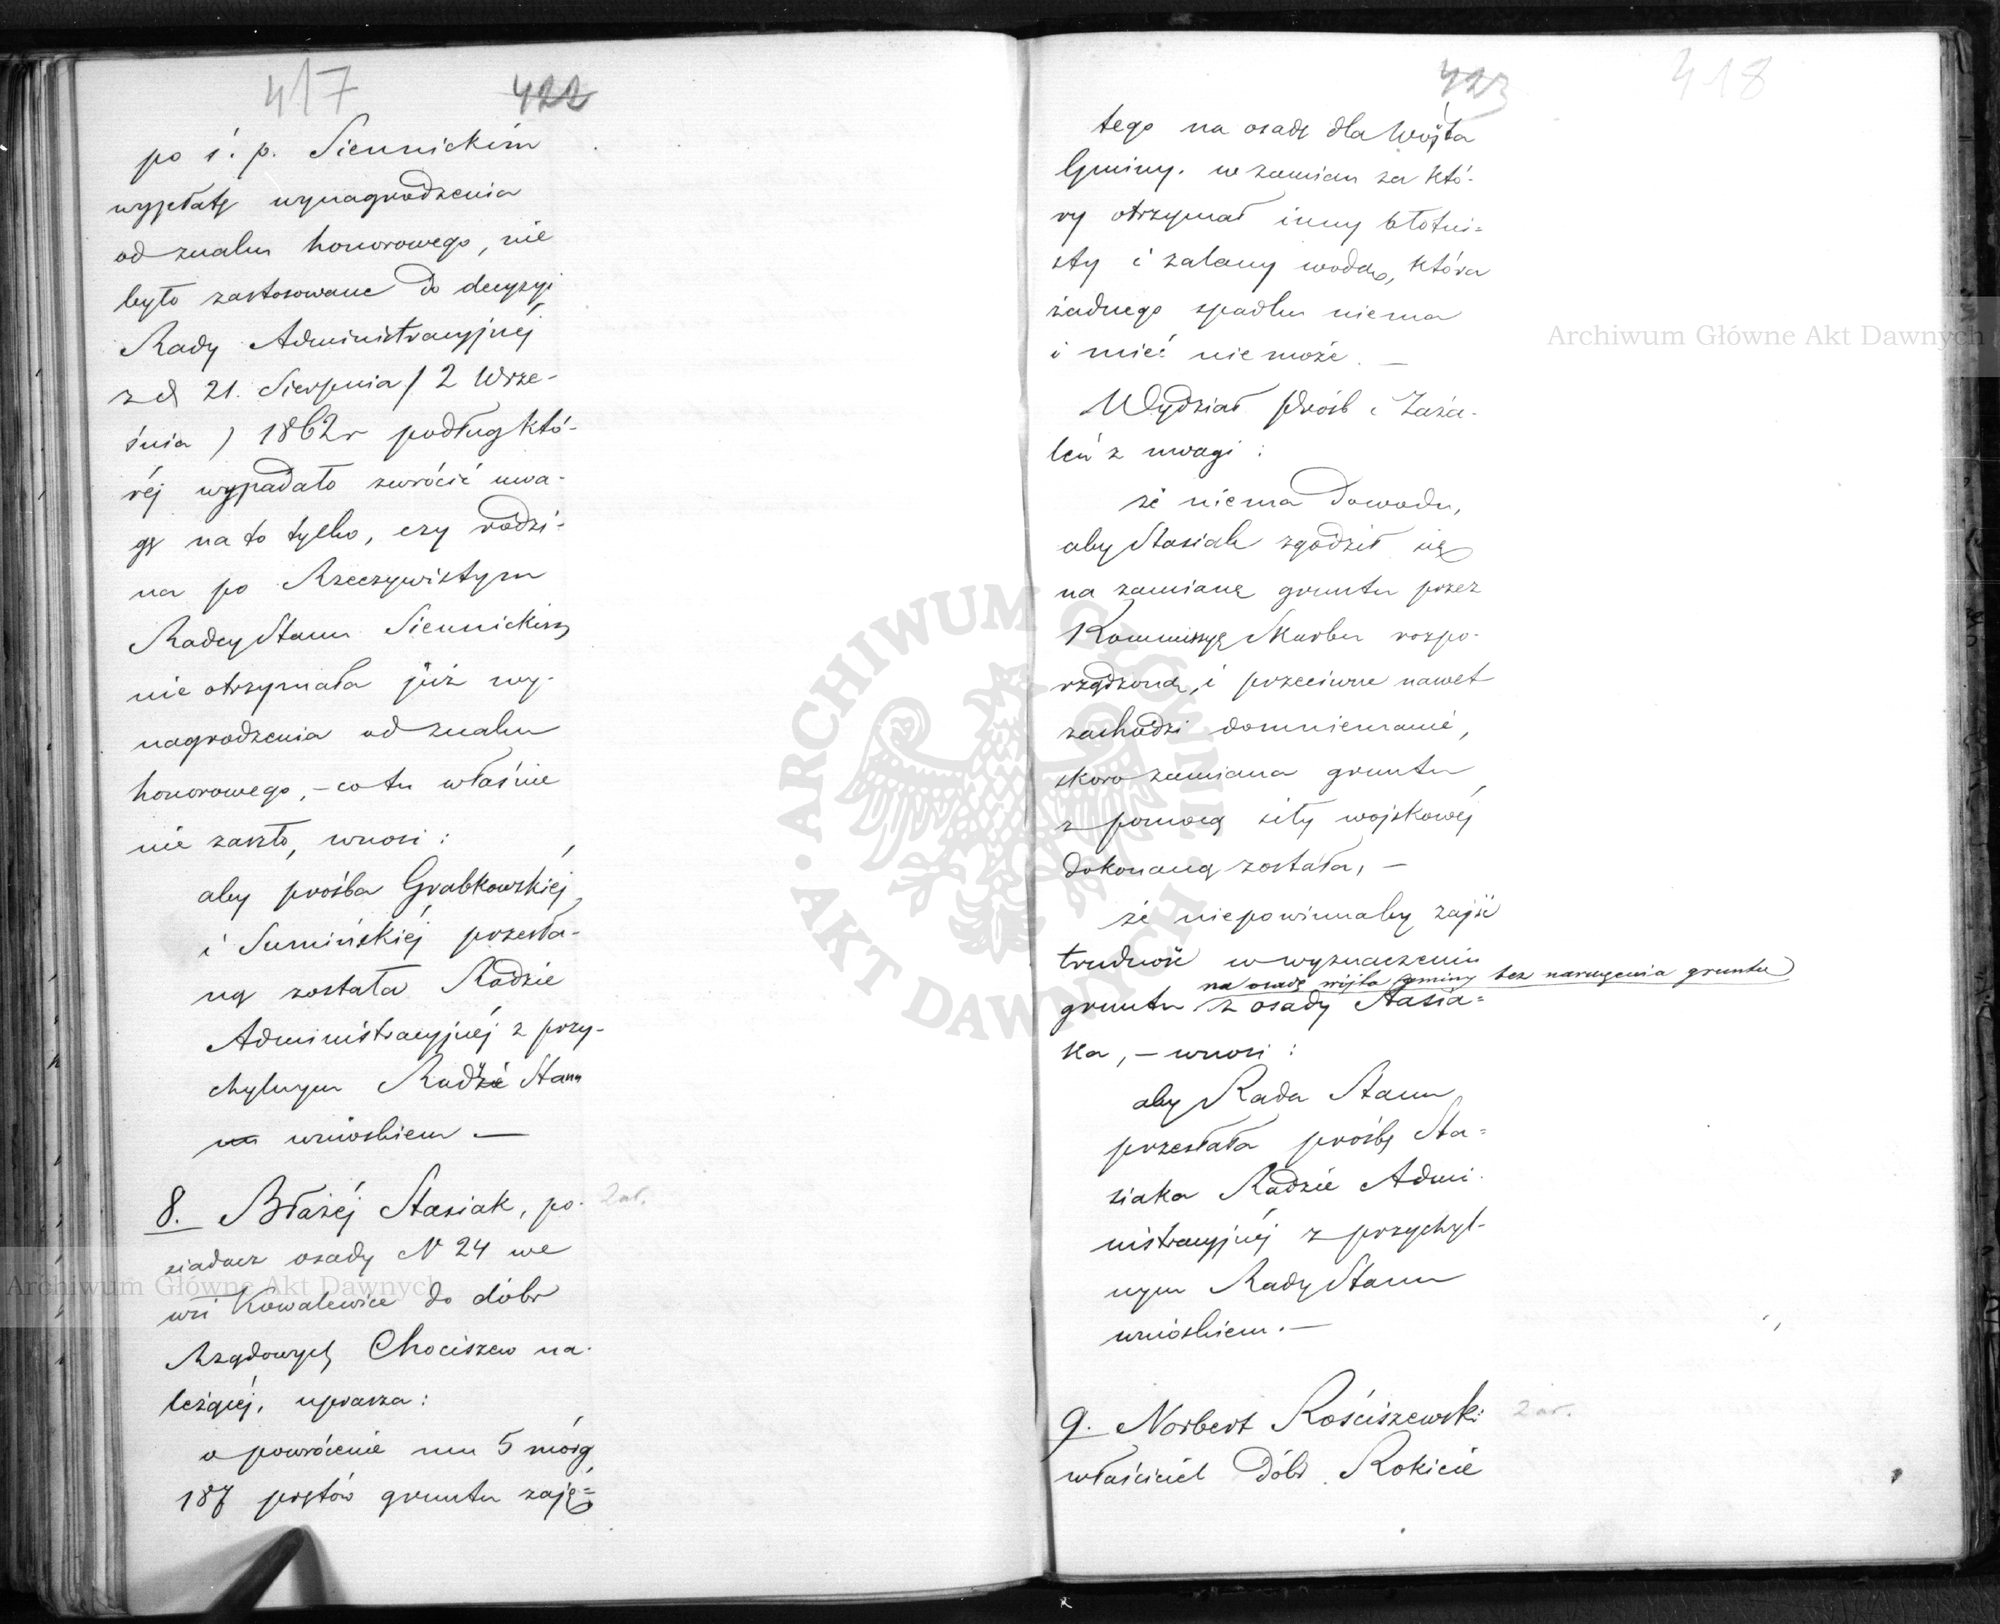 417 422
po ś. p. Siennickim
wypłatę wynagrodzenia
od znaku honorowego, nie
było zastosowane do decyzyi
Rady Administracyjnéj
z d 21. Sierpnia / 2 Wrze-
śnia ) 1862 r podług któ-
réj wypadało zwrócić uwa-
gę na to tylko, czy rodzi-
na po Rzeczywistym
Radcy Stanu Siennickim
nie otrzymała już wy-
nagrodzenia od znaku
honorowego, - co tu właśnie
nie zaszło, wnosi :
aby prośba Grabkowskiéj
i Sumińskiéj przesła-
ną została Radzie
Administracyjnéj z przy-
chylnym Rady Stanu
wnioskiem. —
8. Błażéj Stasiak, po- 2 ar.
siadacz osady N 24 we
wsi Kowalewice do dóbr
Rządowych Chociszew na-
leżącéj, uprasza :
o powrócenie mu 5 mórg
187 prętów gruntu zaję=
423 418
tego na osadę dla Wójta
Gminy. w zamian za któ-
ry otrzymał inny błotni=
sty i zalany wodą, która
żadnego spadku niema
i mieć nie może. —
Wydział Próśb i Zaża-
leń z uwagi :
że niema dowodu,
aby Stasiak zgodził się
na zamianę gruntu przez
Kommissyę Skarbu rozpo-
rządzoną, i przeciwne nawet
zachodzi domniemanie,
skoro zamiana gruntu
z pomocą siły wojskowéj
dokonaną została, —
że niepowinnaby zajść
trudność w wyznaczeniu
na osadę wójta gminy bez naruszenia gruntu
gruntu z osady Stasia=
ka, — wnosi :
aby Rada Stanu
przesłała prośbę Sta=
siaka Radzie Admi-
nistracyjnéj z przychyl-
nym Rady Stanu
wnioskiem. —
9. Norbert Rościszewski 2 ar.
właściciel Dóbr Rokicie
Archiwum Główne Akt Dawnych
Archiwum Główne Akt Dawnych
ARCHIWUM GŁÓWNE AKT DAWNYCH